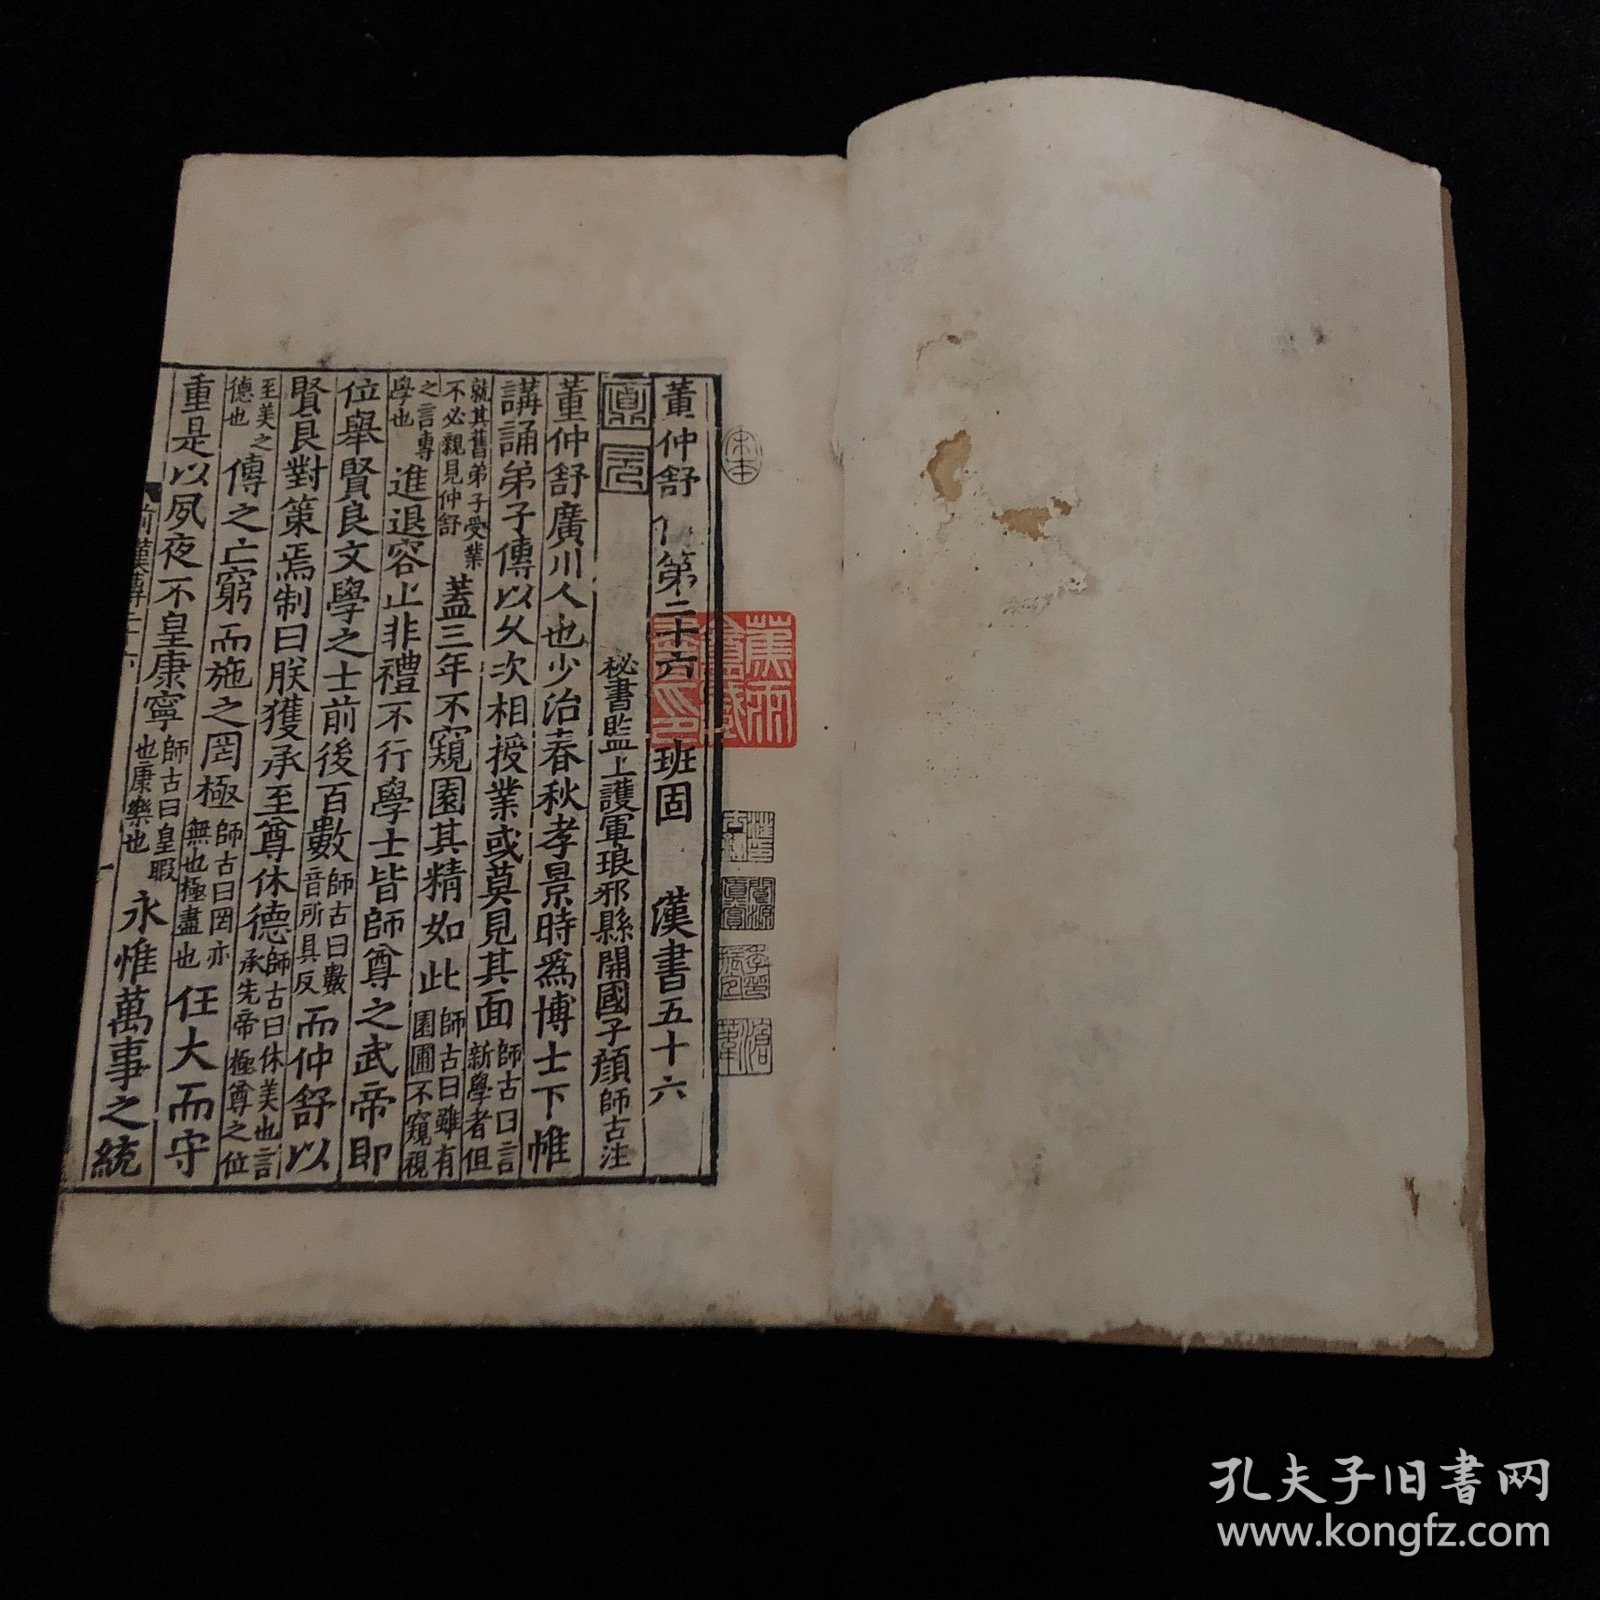 董仲舒傳第二十六 班固 漢書五十六
祕書監上護軍琅邪縣開國子顏師古注
董仲舒廣川人也少治春秋孝景時爲博士下帷
講誦弟子傳以久次相授業或莫見其面師古曰言新學者但
就其舊弟子受業不必親見仲舒蓋三年不窺園其精如此師古曰雖有園圃不窺視
之言專學也進退容止非禮不行學士皆師尊之武帝即
位舉賢良文學之士前後百數師古曰數音所具反而仲舒以
賢良對策焉制曰朕獲承至尊休德師古曰休美也言承先帝極尊之位
至美之德也傳之亡窮而施之罔極師古曰罔亦無也極盡也任大而守
重是以夙夜不皇康寧師古曰皇暇也康樂也永惟萬事之統
前漢傳二十六
宋本
蕉雨
孔夫子旧书网
www.kongfz.com